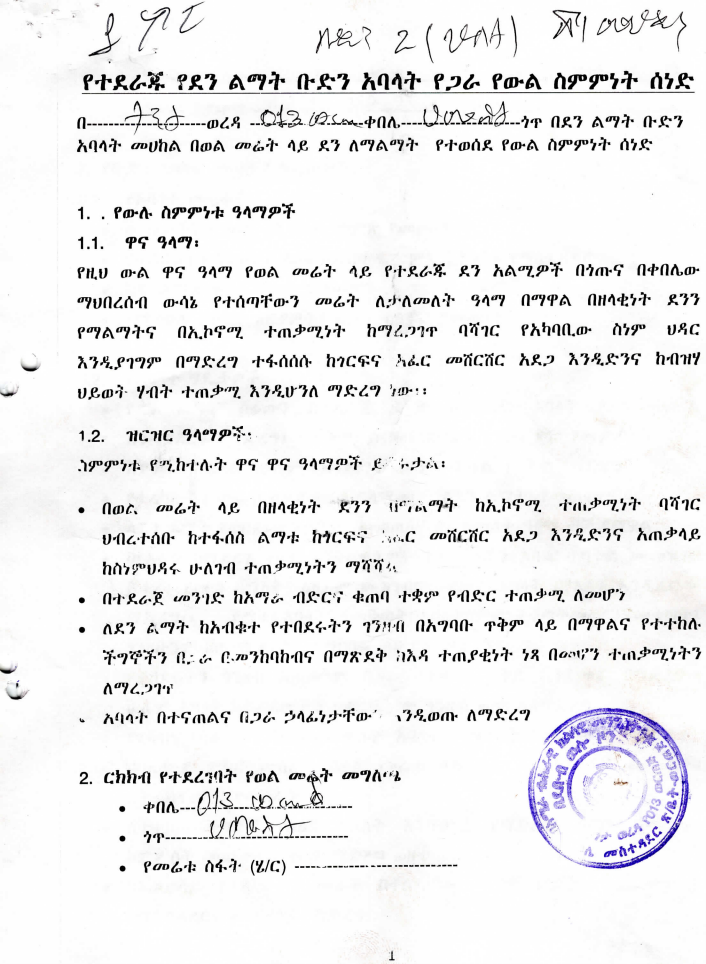 2 (
የተደራጁ የደን ልማት ቡድን አባላት የጋራ የውል ስምምነት ሰነድ
በ-----------------------ወረዳ -------------------ቀበሌ-----------------------ጎጥ በደን ልማት ቡድን
አባላት መሀከል በወል መሬት ላይ ደን ለማልማት የተወሰደ የውል ስምምነት ሰነድ
1. . የውሉ ስምምነቱ ዓላማዎች
1.1. ዋና ዓላማ፡
የዚህ ውል ዋና ዓላማ የወል መሬት ላይ የተደራጁ ደን አልሚዎች በጎጡና በቀበሌው
ማህበረሰብ ውሳኔ የተሰጣቸውን መሬት ለታለመለት ዓላማ በማዋል በዘላቂነት ደንን
የማልማትና በኢኮኖሚ ተጠቃሚነት ከማረጋገጥ ባሻገር የአካባቢው ስነም ህዳር
እንዲያገግም በማድረግ ተፋሰሰሱ ከጎርፍና አፈር መሸርሸር አደጋ እንዲድንና ከብዝሃ
ህይወት ሃብት ተጠቃሚ እንዲሆንለ ማድረግ ነው።
1.2. ዝርዝር ዓላማዎች፡
ስምምነቱ የሚከተሉት ዋና ዋና ዓላማዎች ይኖሩታል፡
• በወል መሬት ላይ በዘላቂነት ደንን በማልማት ከኢኮኖሚ ተጠቃሚነት ባሻገር
ህብረተሰቡ ከተፋሰስ ልማቱ ከጎርፍና አፈር መሸርሸር አደጋ እንዲድንና አጠቃላይ
ከስነምህዳሩ ሁለገብ ተጠቃሚነትን ማሻሻል
• በተደራጀ መንገድ ከአማራ ብድርና ቁጠባ ተቋም የብድር ተጠቃሚ ለመሆን
• ለደን ልማት ከአብቁተ የተበደሩትን ገንዘብ በአግባቡ ጥቅም ላይ በማዋልና የተተከሉ
ችግኞችን በጋራ በመንከባከብና በማጽደቅ ከእዳ ተጠያቂነት ነጻ በመሆን ተጠቃሚነትን
ለማረጋገጥ
• አባላት በተናጠልና በጋራ ኃላፊነታቸውን እንዲወጡ ለማድረግ
2. ርክክብ የተደረገበት የወል መሬት መግለጫ
• ቀበሌ---
• ጎጥ---
• የመሬቱ ስፋት (ሄ/ር) ---------------------------
1